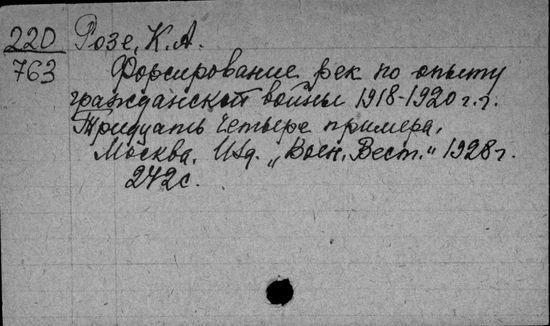 220
763
Розе, К.А.
Форсирование рек по опыту
гражданской войны 1918-1920 г.г.
Тридцать четыре примера.
Москва. Изд. „Воен. Вест.“ 1928 г.
242 с.